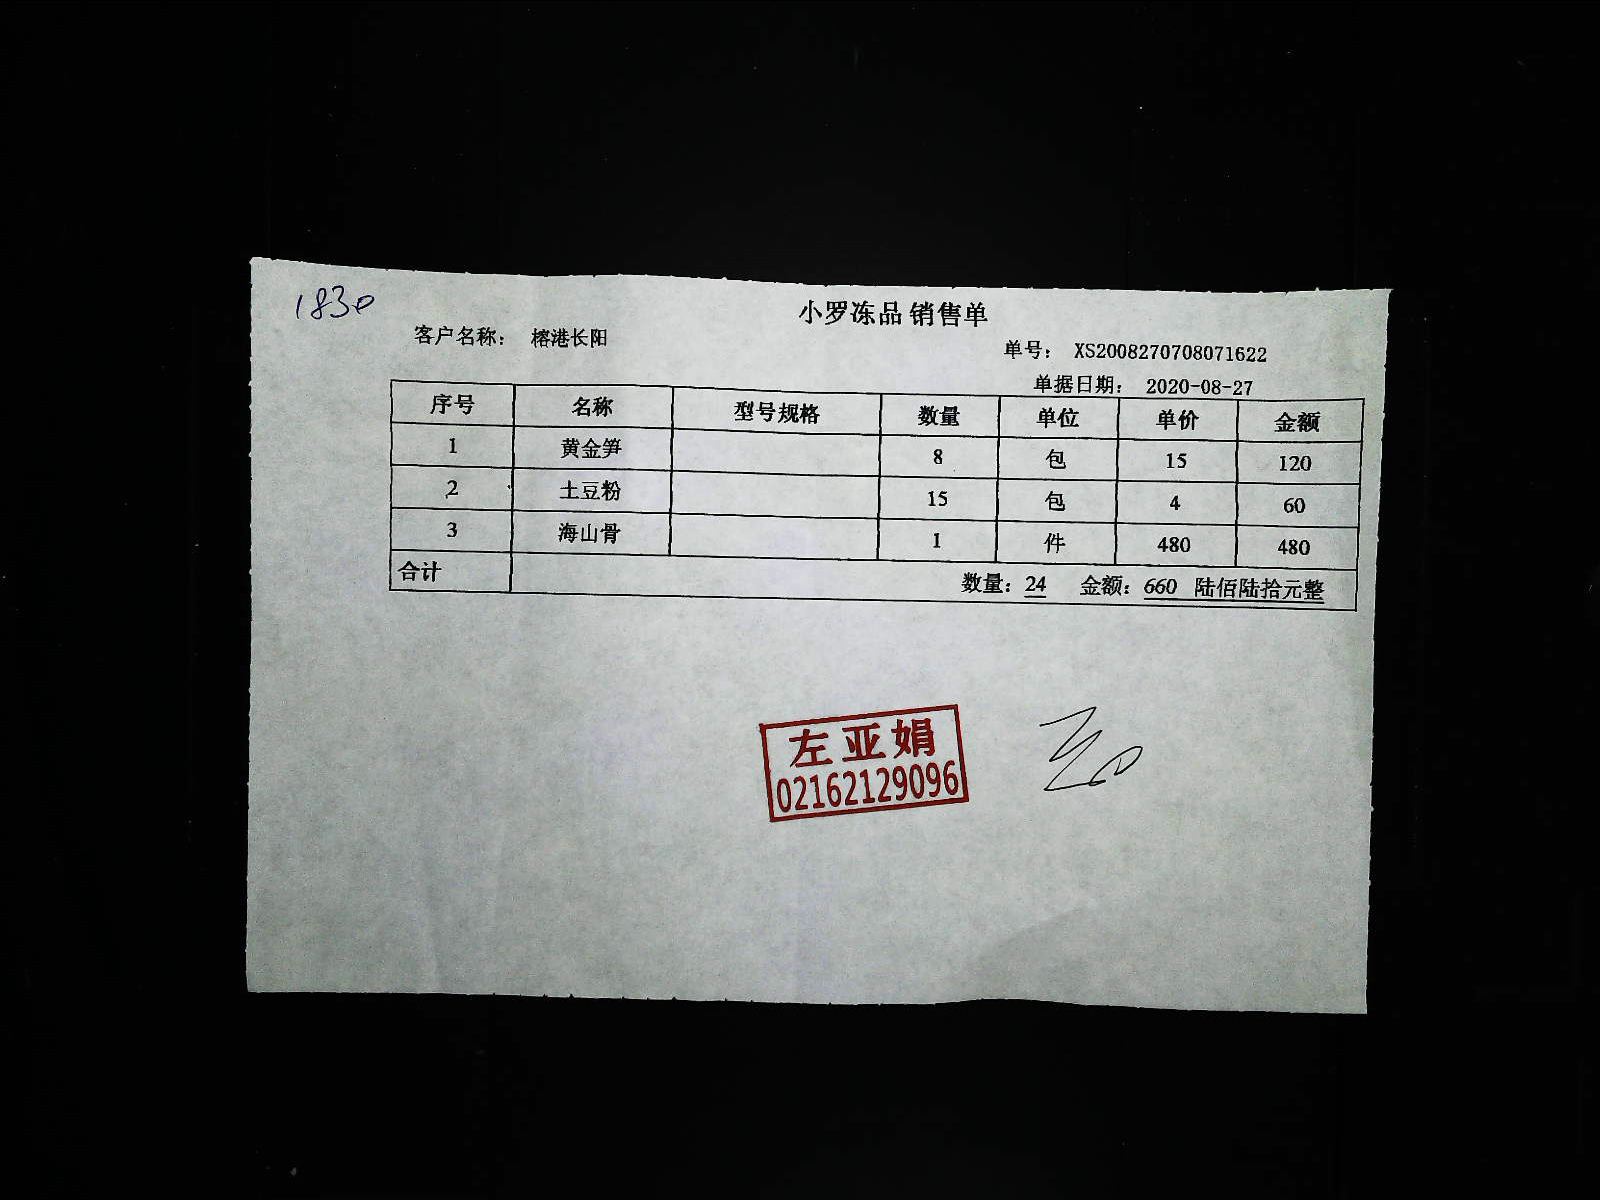 1830
小罗冻品 销售单
客户名称： 榕港长阳
单号： XS2008270708071622
单据日期： 2020-08-27
序号 名称 型号规格 数量 单位 单价 金额
1 黄金笋 8 包 15 120
2 土豆粉 15 包 4 60
3 海山骨 1 件 480 480
合计 数量：24 金额：660 陆佰陆拾元整
左亚娟
02162129096